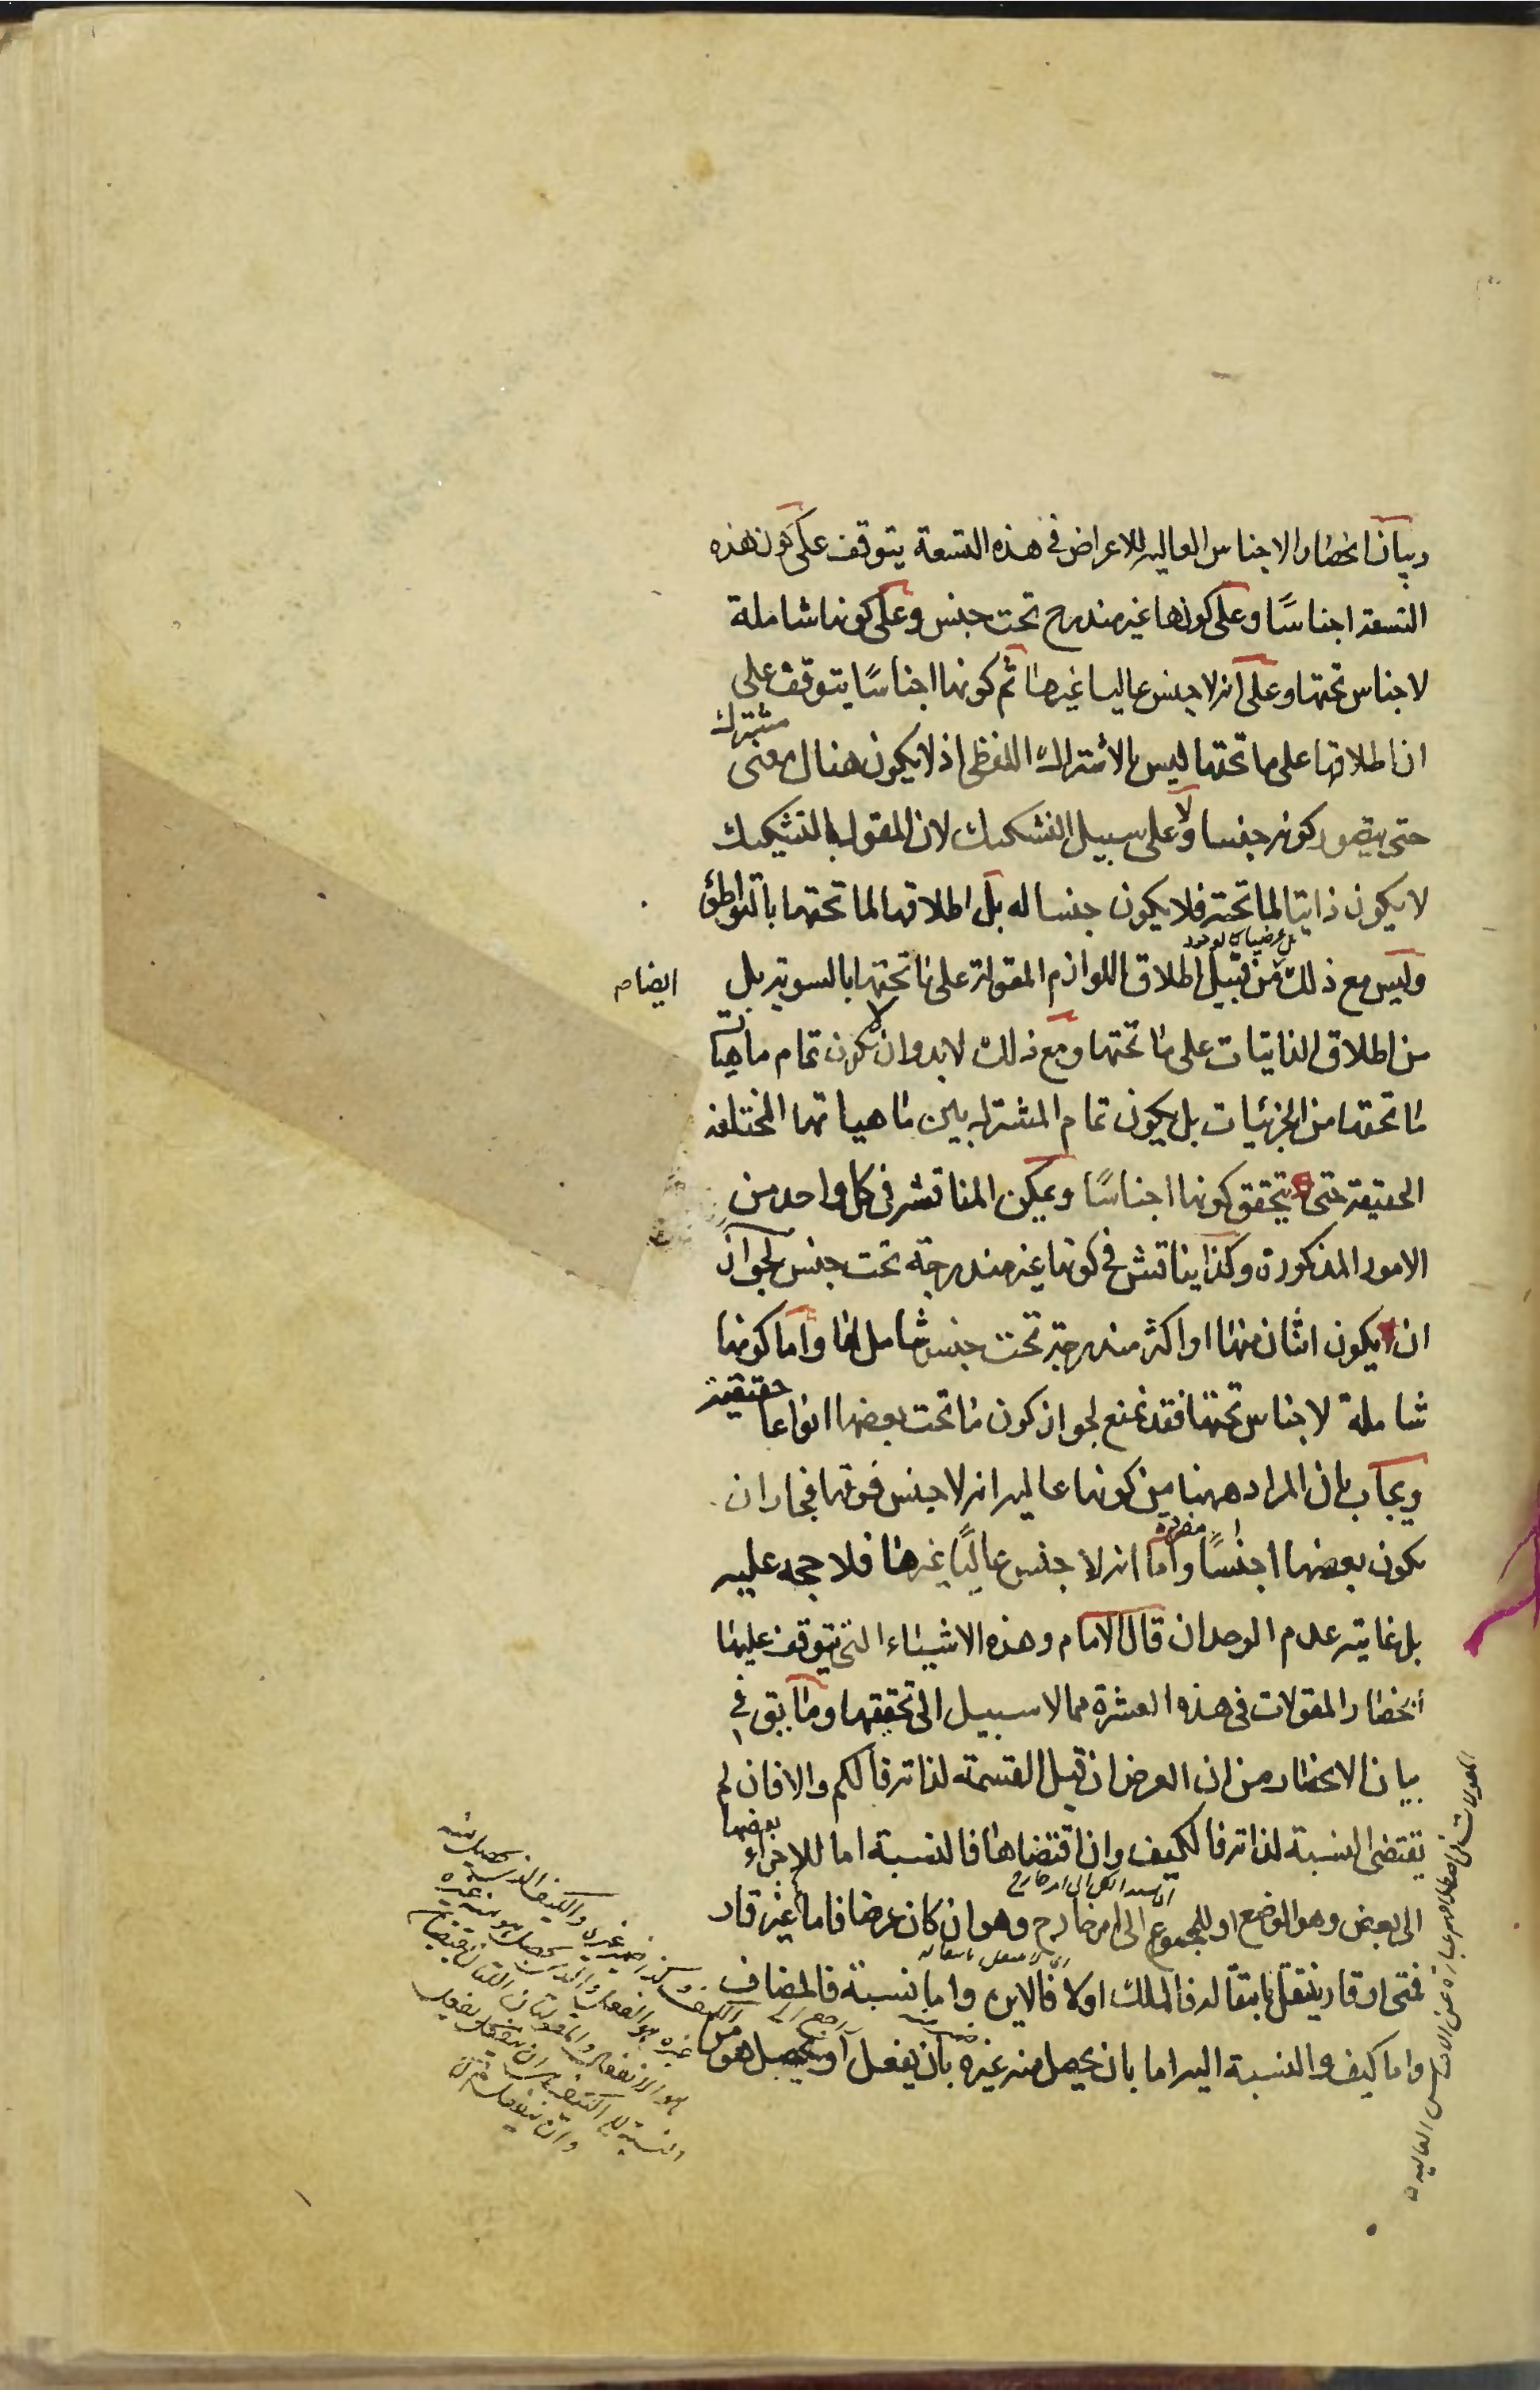 وبيان انحصار الاجناس العاليه للاعراض فى هذه التسعة يتوقف على كون هذه
التسعة اجناسًا وعلى كونها غير مندرج تحت جنس وعلى كونها شاملة
لاجناس تحتها وعلى انه لا جنس عاليا غيرها ثم كونها اجناسًا يتوقف على
ان اطلاقها على ما تحتها ليس بالاشتراك اللفظى اذ لا يكون هناك معنى مشترك
حتى يتصور كونه جنسا ولا على سبيل التشكيك لان المقول بالتشكيك
لا يكون ذاتيا لما تحته فلا يكون جنسا له بل اطلاقها لما تحتها بالتواطؤ
وليس مع ذلك من قبيل اطلاق اللوازم المقولة على ما تحتها بالسوية بل
ايضا
من اطلاق الذاتيات على ما تحتها ومع ذلك لابد وان لا يكون تمام ماهيات
ما تحتها من الجزئيات بل يكون تمام المشترك بين ماهياتها المختلفة
الحقيقة حتى يتحقق كونها اجناسًا ويمكن المناقشة فى كل واحد من
الامور المذكورة وكذا يناقش فى كونها غير مندرجة تحت جنس لجواز
ان يكون اثنان منها او اكثر مندرجة تحت جنس شامل لها واما كونها
شاملة لاجناس تحتها فقد نمنع لجواز كون ما تحت بعضها انواعا حقيقية
ويجاب بان المراد ههنا من كونها عاليه انه لا جنس فوقها فجاز ان
يكون بعضها اجناسًا مفردة واما انه لا جنس عاليًا غيرها فلا حجه عليه
بل غايته عدم الوجدان قال الامام وهذه الاشياء التى يتوقف عليها
انحصار المقولات فى هذه العشرة مما لا سبيل الى تحقيقها وما بقى فى
بيان الانحصار من ان العرض ان قبل القسمة لذاته فالكم والا فان لم
يقتضى النسبة لذاته فالكيف وان اقتضاها فالنسبة اما للاجزاء بعضها
الى بعض وهو الوضع او للمجموع الى امر خارج وهو ان كان عرضا فاما غير قار
فمتى او قار ينتقل بانتقاله فالملك اولا فالاين واما نسبة فالمضاف
واما كيف والنسبة اليه اما بان يحصل منه غيره بان يفعل او يحصل هو من